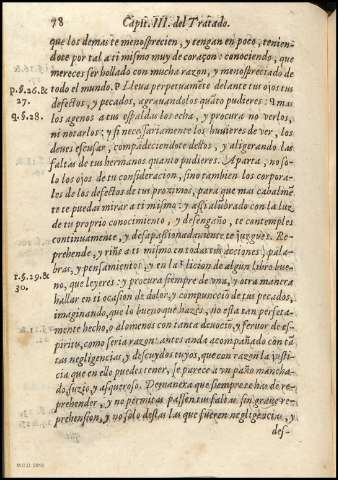 78 Capit. III. del Tratado.
que los demas te menosprecien, y tengan en poco, tenien-
dote por tal a ti mismo muy de coraçon: conociendo, que
mereces ser hollado con mucha razon, y menospreciado de
todo el mundo. P Lleua perpetuamẽte delante tus ojos tus
p. §. 26. &
27.
defectos, y pecados, agrauandolos quãto pudieres: q mas
los agenos a tus espaldas los echa, y procura no verlos,
q. §. 28.
ni notarlos: y si necessariamente los huuieres de ver, los
deues escusar, compadeciendote dellos, y aligerando las
faltas de tus hermanos quanto pudieres. Aparta, no so-
lo los ojos de tu consideracion, sino tambien los corpora-
les de los defectos de tus proximos, para que mas cabalmẽ
te te puedas mirar a ti mismo: y assi alũbrado con la luz
de tu proprio conocimiento, y desengaño, te contemples
continuamente, y desapassionadamente te juzgues. Re-
prehende, y riñe a ti mismo en todas tus acciones, pala-
bras, y pensamientos, y en la licion de algun libro bue-
r. §. 29. &
30.
no, que leyeres: y procura siempre de una, y otra manera
hallar en ti ocasion de dolor, y compunciõ de tus pecados,
imaginando, que lo bueno que hazes, no esta tan perfeta-
mente hecho, o alomenos con tanta deuociõ, y feruor de es-
piritu, como seria razon: antes anda acompañado con tã
tas negligencias, y descuydos tuyos, que con razon la justi-
cia que en ello puedes tener, se parece a vn paño mancha-
do, suzio, y asqueroso. De manera que siempre te has de re-
prehender, y no permitas passen tus faltas sin graue re-
prehension, y no solo destas las que fueren negligencias, y
des-